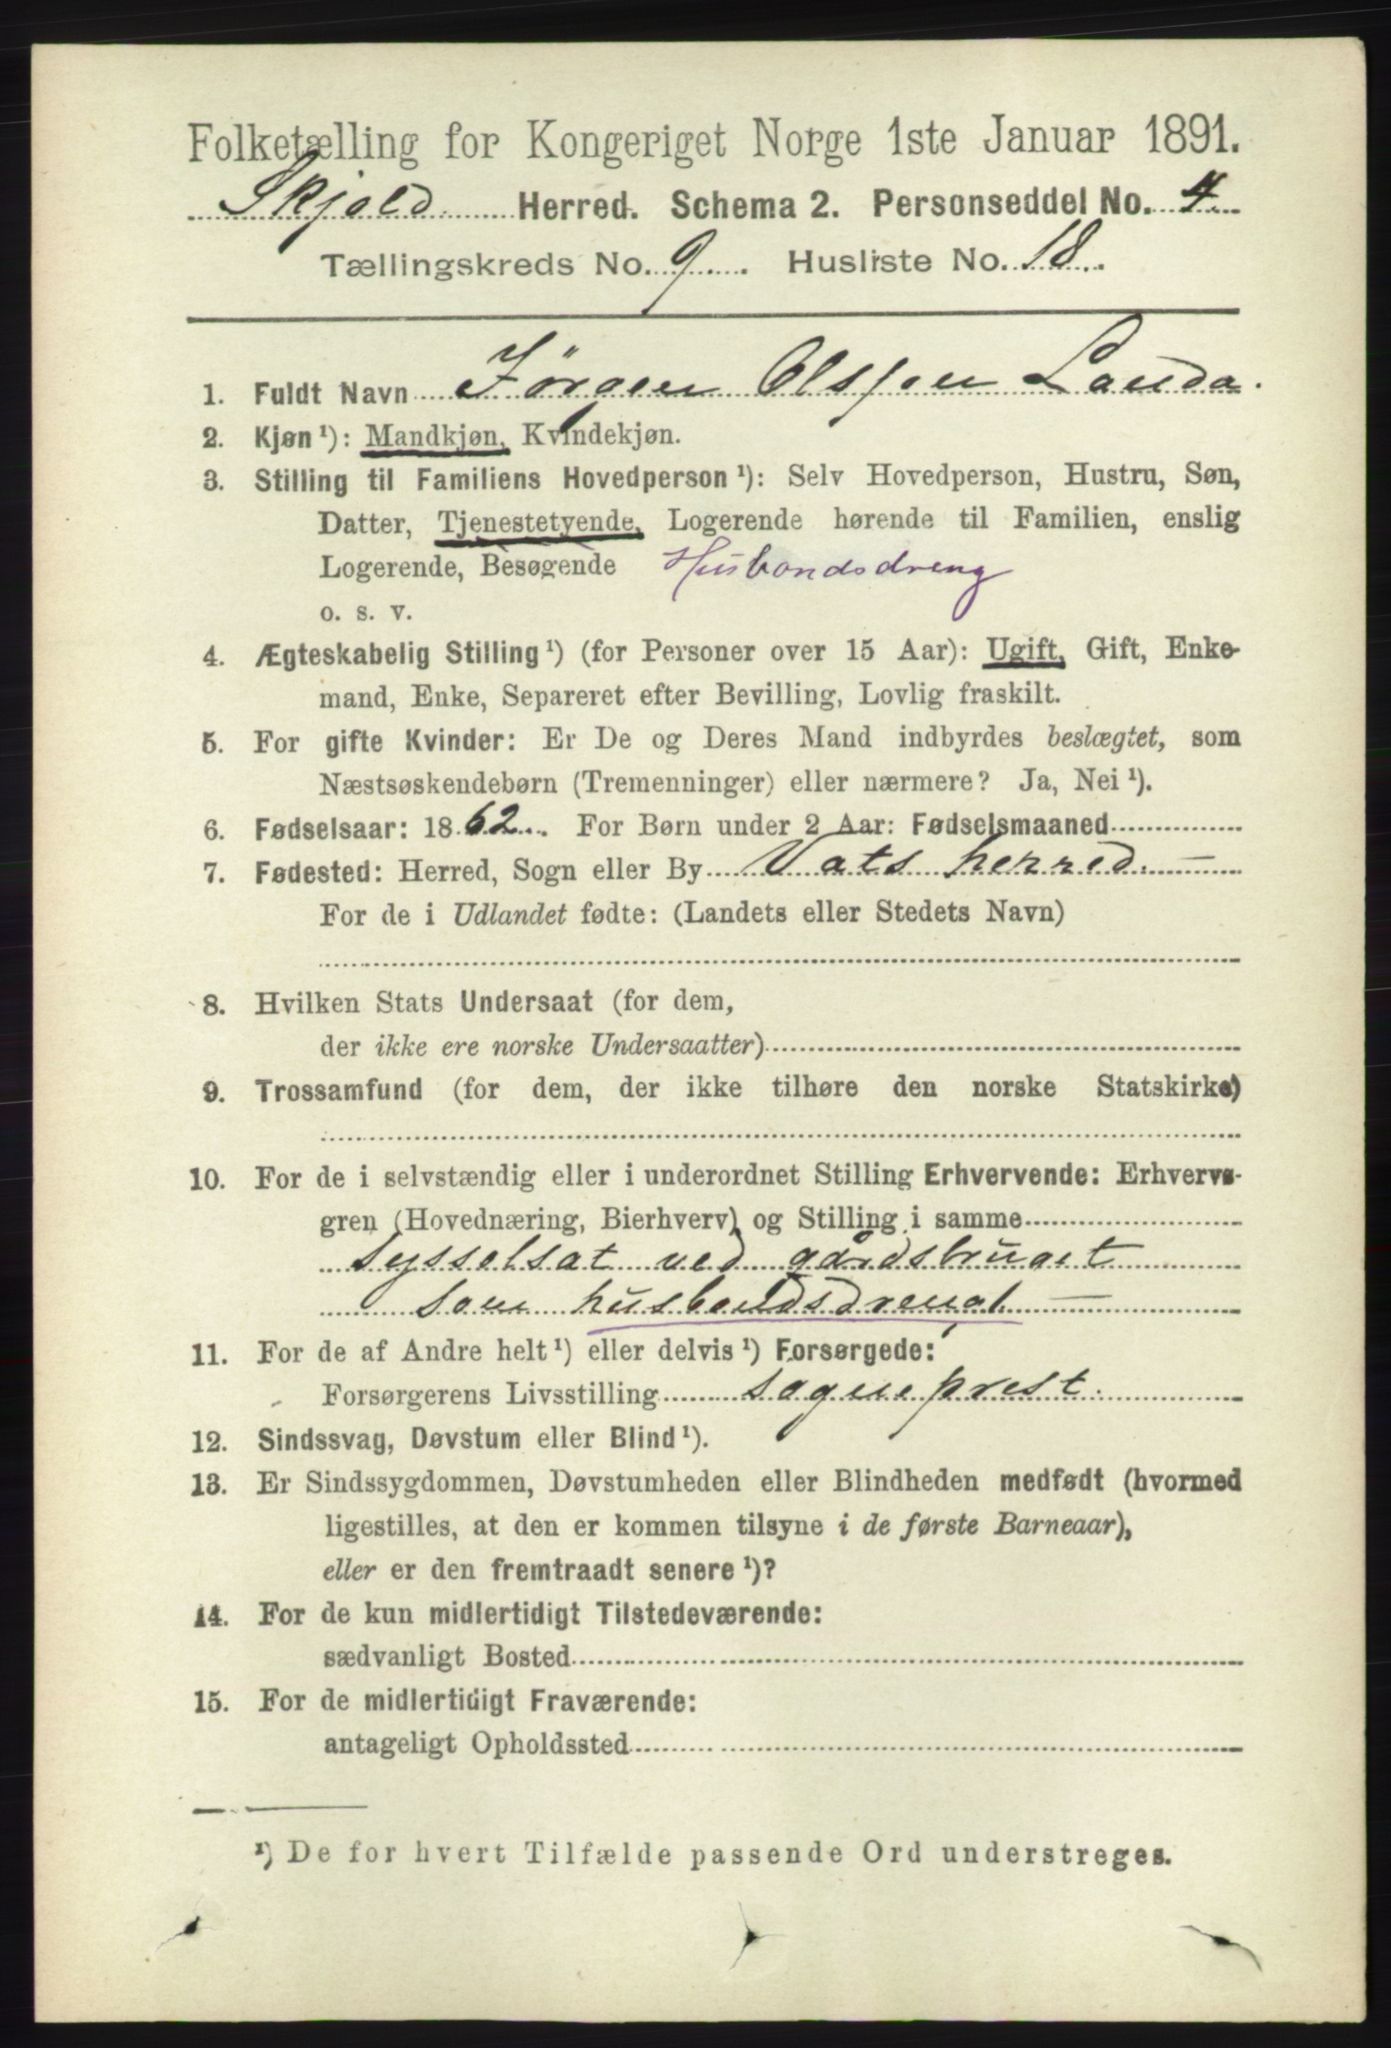 Folketælling for Kongeriget Norge 1ste Januar 1891.
Skjold Herred. Schema 2. Personseddel No. 4
Tællingskreds No. 9. Husliste No. 18.
1. Fuldt Navn Jørgen Olssen Landa.
2. Kjøn ¹): Mandkjøn, Kvindekjøn.
3. Stilling til Familiens Hovedperson ¹): Selv Hovedperson, Hustru, Søn,
Datter, Tjenestetyende, Logerende hørende til Familien, enslig
Logerende, Besøgende Husbondsdreng
o. s. v.
4. Ægteskabelig Stilling ¹) (for Personer over 15 Aar): Ugift, Gift, Enke-
mand, Enke, Separeret efter Bevilling, Lovlig fraskilt.
5. For gifte Kvinder: Er De og Deres Mand indbyrdes beslægtet, som
Næstsøskendebørn (Tremenninger) eller nærmere? Ja, Nei ¹).
6. Fødselsaar: 1862. For Børn under 2 Aar: Fødselsmaaned
7. Fødested: Herred, Sogn eller By Vats herred. —
For de i Udlandet fødte: (Landets eller Stedets Navn)
8. Hvilken Stats Undersaat (for dem,
der ikke ere norske Undersaatter)
9. Trossamfund (for dem, der ikke tilhøre den norske Statskirke)
10. For de i selvstændig eller i underordnet Stilling Erhvervende: Erhvervs-
gren (Hovednæring, Bierhverv) og Stilling i samme
sysselsat ved gårdsbruget
som husbondsdreng. —
11. For de af Andre helt ¹) eller delvis ¹) Forsørgede:
Forsørgerens Livsstilling sogneprest.
12. Sindssvag, Døvstum eller Blind ¹).
13. Er Sindssygdommen, Døvstumheden eller Blindheden medfødt (hvormed
ligestilles, at den er kommen tilsyne i de første Barneaar),
eller er den fremtraadt senere ¹)?
14. For de kun midlertidigt Tilstedeværende:
sædvanligt Bosted
15. For de midlertidigt Fraværende:
antageligt Opholdssted
¹) De for hvert Tilfælde passende Ord understreges.